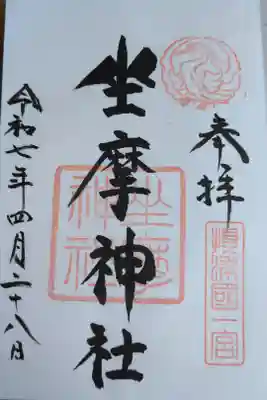 奉拝
攝津國一宮
坐摩神社
坐摩神社
令和七年四月二十八日